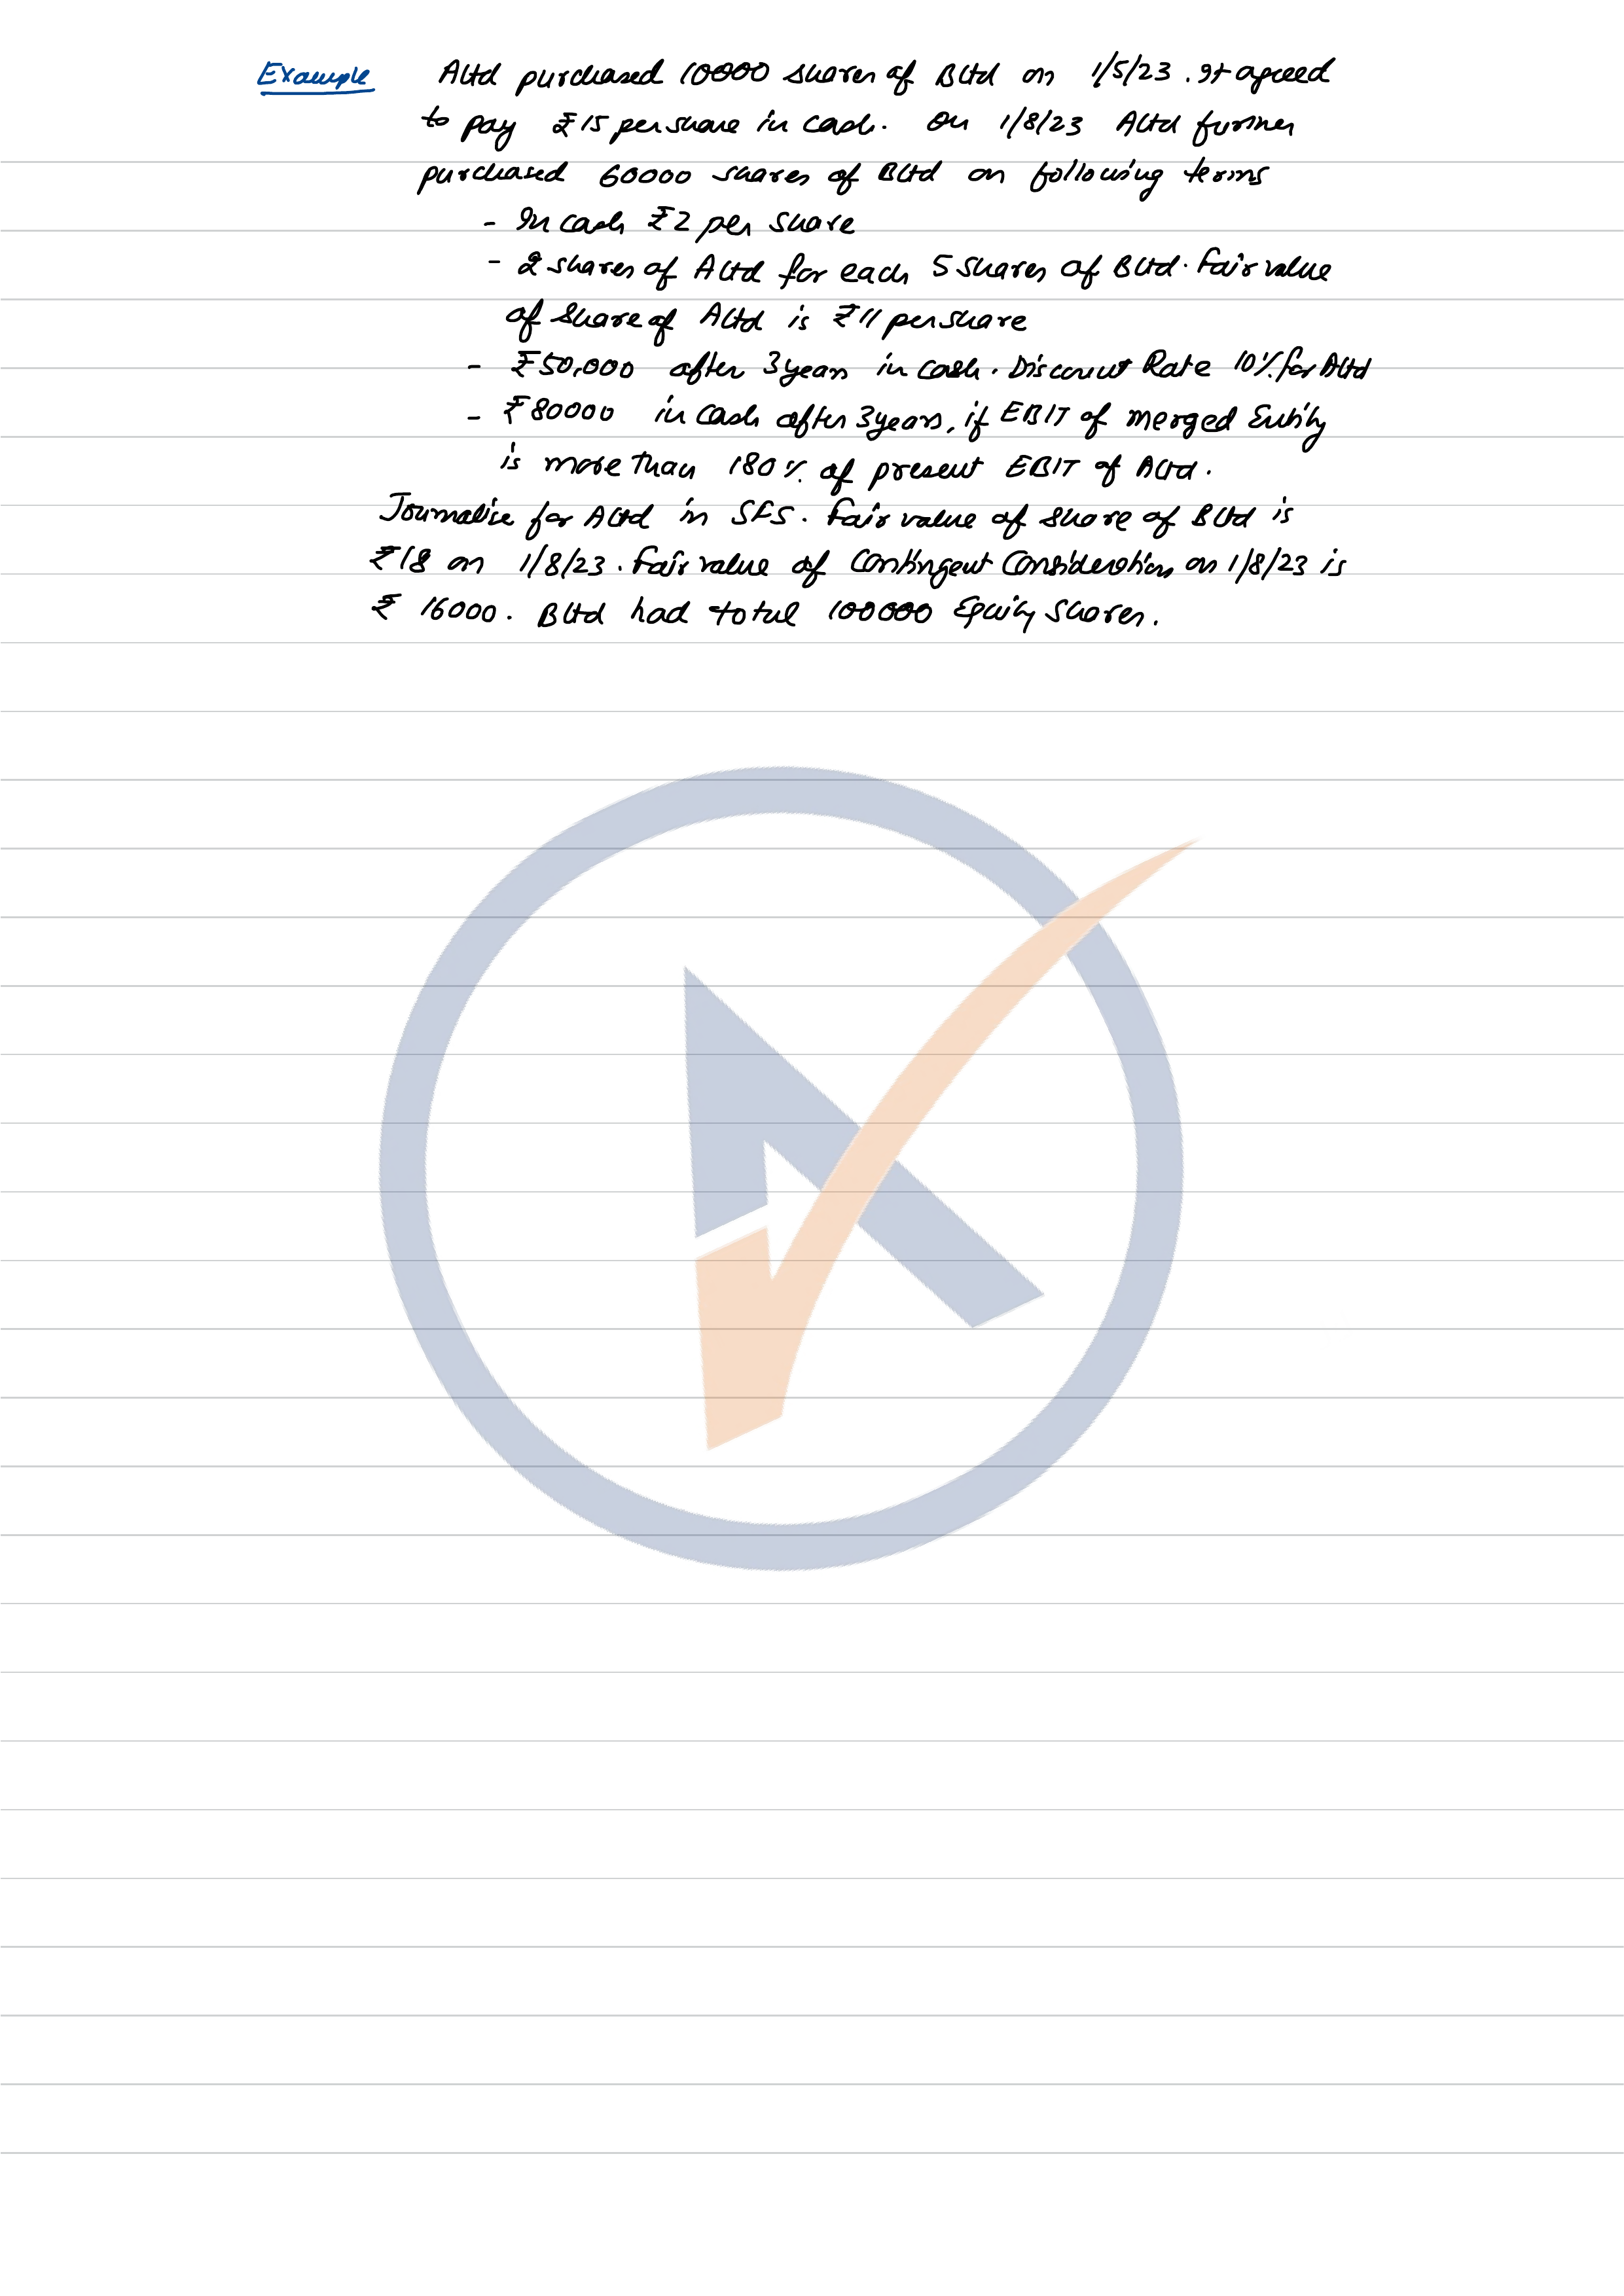 Example A Ltd purchased 10000 shares of B Ltd on 1/5/23. It agreed
to pay ₹15 per share in cash. On 1/8/23 A Ltd further
purchased 60000 shares of B Ltd on following terms
- In cash ₹2 per share
- 2 shares of A Ltd for each 5 shares of B Ltd. Fair value
of share of A Ltd is ₹11 per share
- ₹50,000 after 3 years in cash. Discount Rate 10% for A Ltd
- ₹80000 in cash after 3 years, if EBIT of merged Entity
is more than 180% of present EBIT of A Ltd.
Journalise for A Ltd in SFS. Fair value of share of B Ltd is
₹18 on 1/8/23. Fair value of Contingent Consideration on 1/8/23 is
₹ 16000. B Ltd had total 100000 Equity Shares.